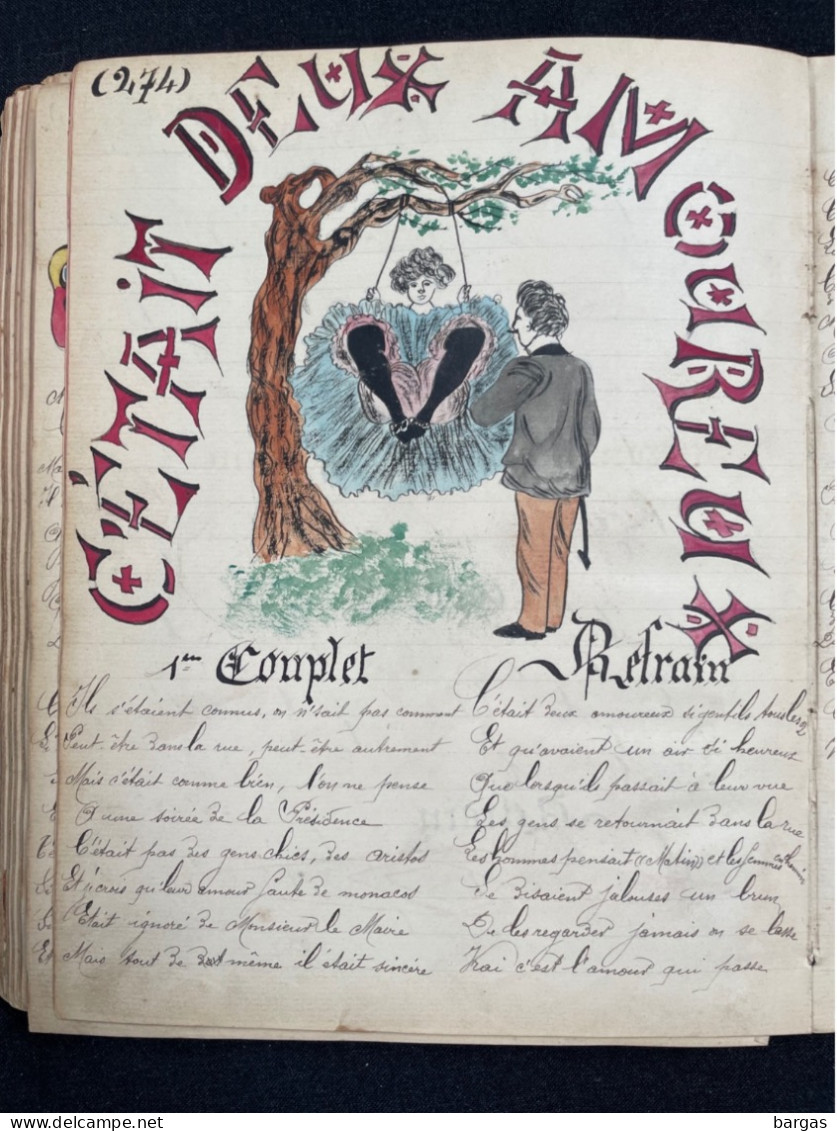 (274)
C'ÉTAIT DEUX AMOUREUX
1er Couplet
Ils s'étaient connus, on n'sait pas comment
Peut-être dans la rue, peut-être autrement
Mais c'était comme bien, l'on ne pense
A une soirée de la Présidence
C'était pas des gens chics, des aristos
Et j'crois qu'leur amour faute de monacos
Etait ignoré de Monsieur le Maire
Mais tout de même il était sincère
Refrain
C'était deux amoureux si gentils tous les 2
Et qu'avaient un air si heureux
Que lorsqu'ils passait à leur vue
Les gens se retournait dans la rue
Les hommes pensait "Matin" et les femmes
Se disaient jalouses un brun
De les regarder jamais on se lasse
Vrai c'est l'amour qui passe
bargas